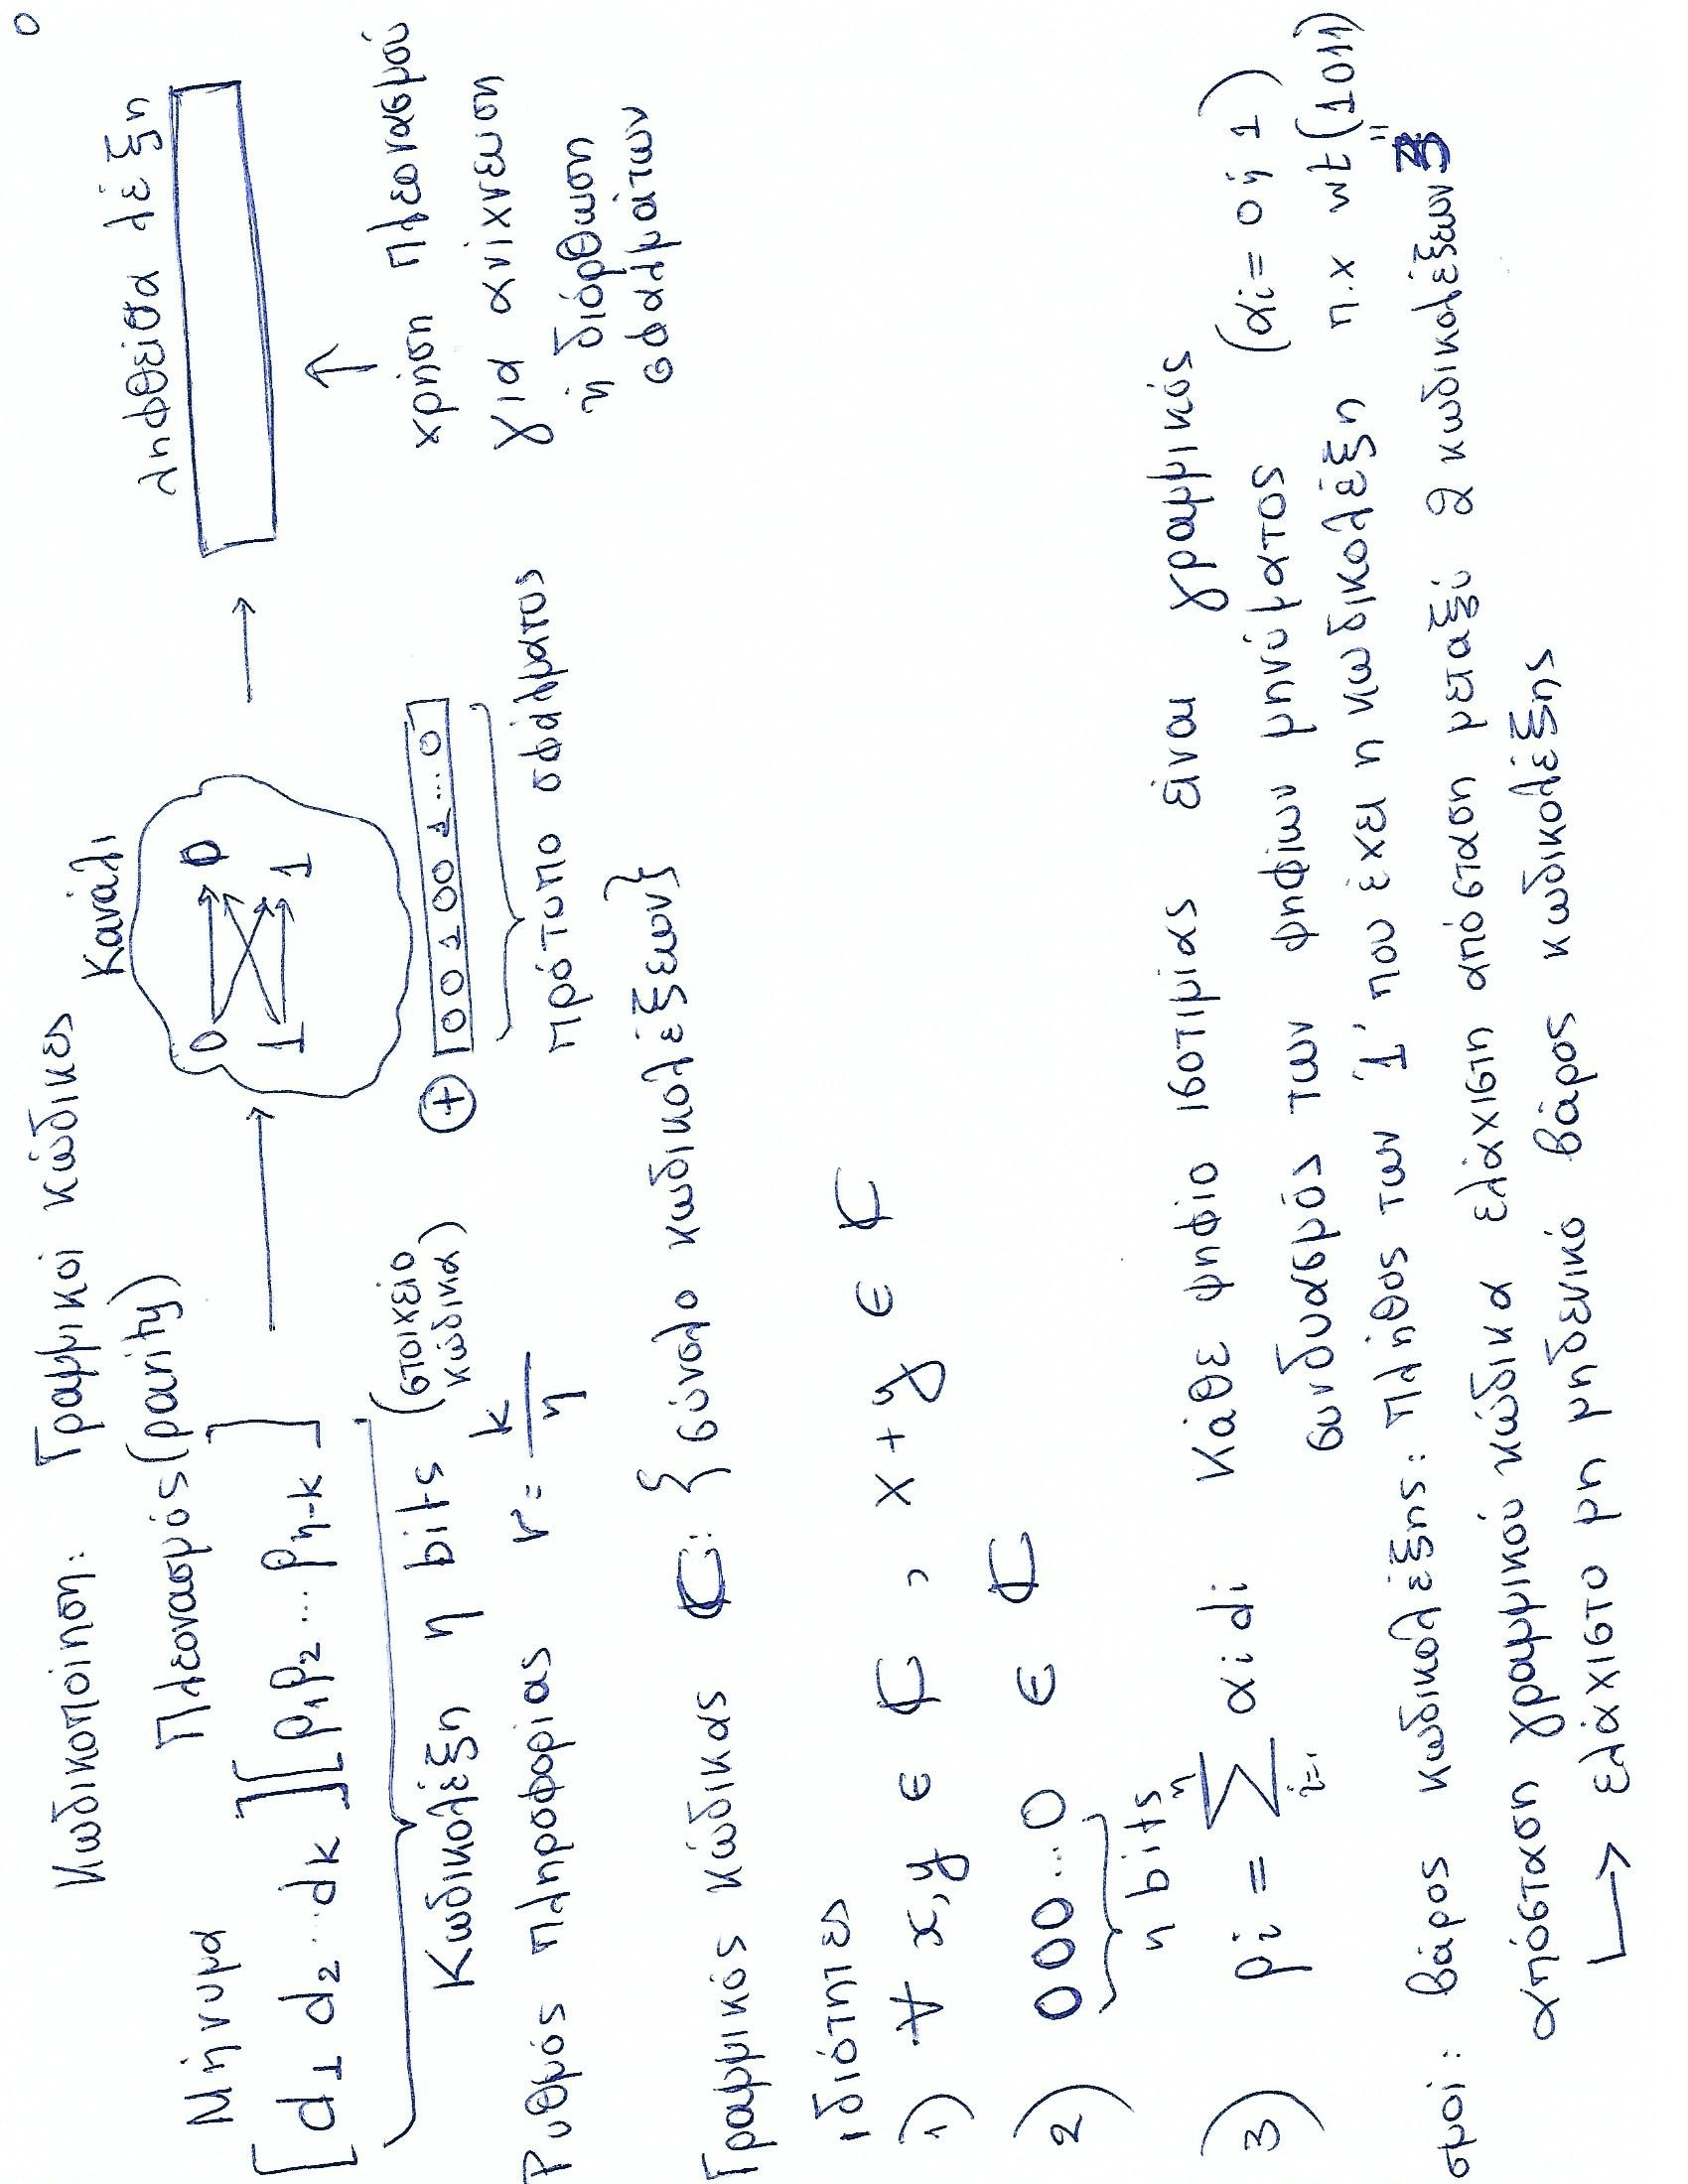 Κωδικοποίηση: Γραμμικοί κώδικες
Μήνυμα Πλεονασμός (parity) Κανάλι ληφθείσα λέξη
[d1 d2 ... dk] [p1 p2 ... pn-k] → 0 0 →
1 1
Κωδικολέξη n bits (στοιχείο κώδικα)
⊕ 0 0 1 0 0 1 ... 0
Πρότυπο σφάλματος
↑
χρήση πλεονασμού
για ανίχνευση
ή διόρθωση
σφαλμάτων
Ρυθμός πληροφορίας r = k/n
Γραμμικός κώδικας C: {σύνολο κωδικολέξεων}
ιδιότητες
1) ∀ x,y ∈ C , x + y ∈ C
2) 000...0 ∈ C
n bits
3) pi = Σ αi di Κάθε ψηφίο ισοτιμίας είναι γραμμικός
συνδυασμός των ψηφίων μηνύματος (αi = 0 ή 1)
σμοί: βάρος κωδικολέξης: πλήθος των '1' που έχει η κωδικολέξη π.χ wt(1011)
" 3
απόσταση γραμμικού κώδικα ελάχιστη απόσταση μεταξύ 2 κωδικολέξεων
↳ ελάχιστο μη μηδενικό βάρος κωδικολέξης